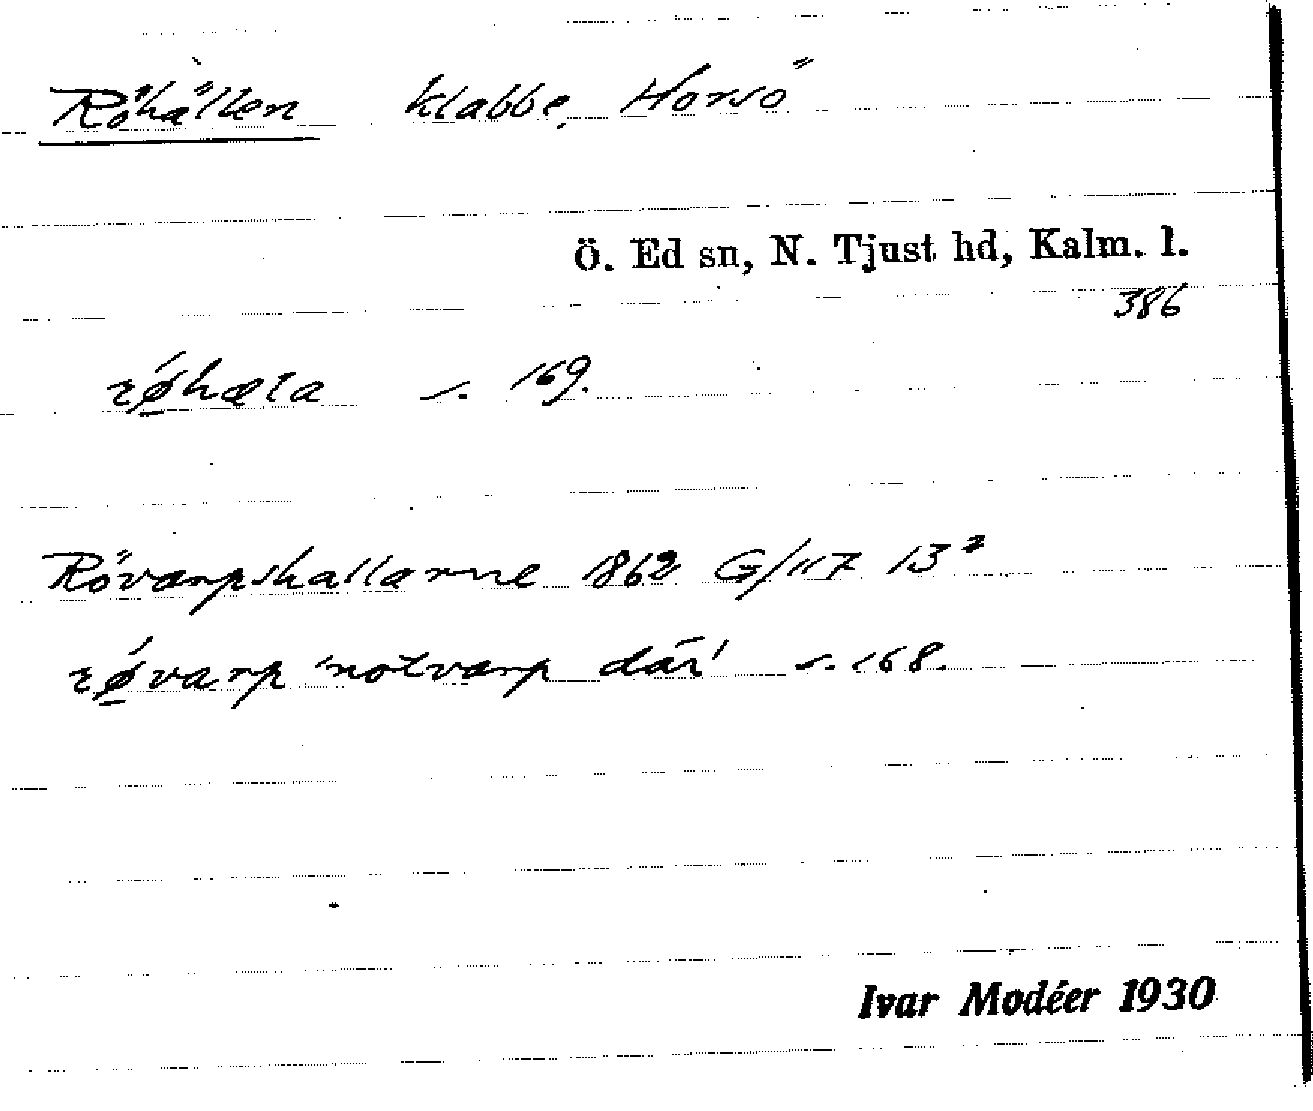 Röhällen klabbe, Horsö
Ö. Ed sn, N. Tjust hd, Kalm. l.
386
rǿ̱hæla s. 169.
Rövarpshallarne 1862 G/117 13²
rǿ̱varp 'notvarp där' s. 168.
Ivar Modéer 1930